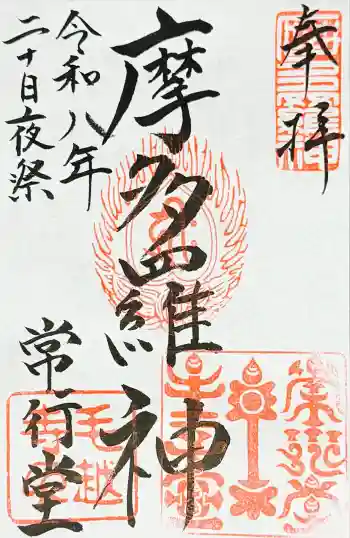 奉拝
摩多羅神
令和八年
二十日夜祭
常行堂
毛越寺